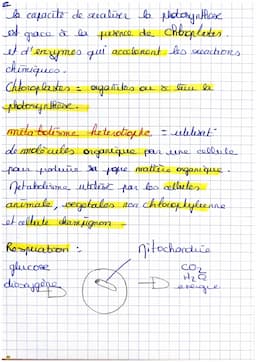 la capacité de réaliser la photosynthèse
est grâce à la présence de chloroplastes.
et d'enzymes qui accelerent les réactions
chimiques.
Chloroplastes = organites où se fait la
photosynthèse.
métabolisme hétérotrophe = utilisat°
de molécules organique par une cellule
pour produire sa propre matière organique.
Métabolisme utilisé par les cellules
animale, végétales non chlorophyllienne
et cellule champignon.
Respiration :
Mitochondrie
glucose
dioxygène
CO2
H2O
énergie